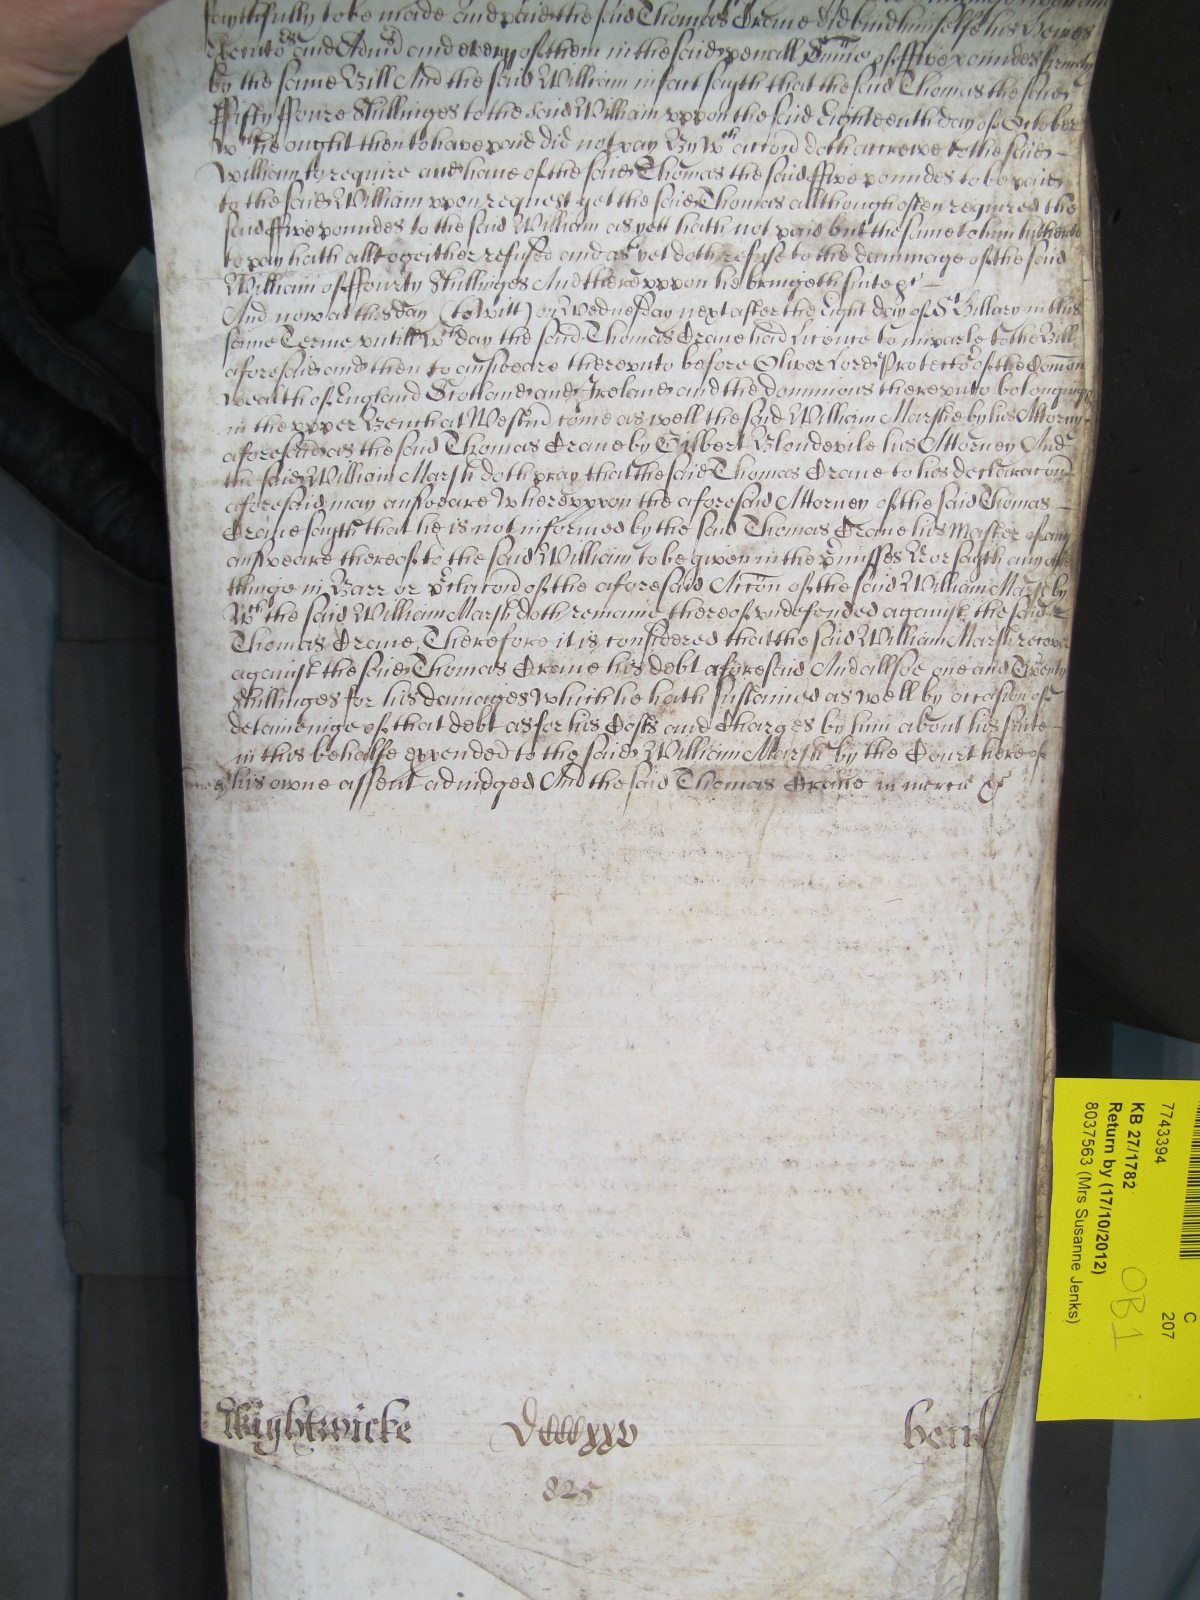 faythfully to be made and paid the said Thomas Crane did bind himselfe his Heires
Execut^rs and Adm^rs and every of them in the said penall Summe of ffive poundes firmely
by the same Bill And the said William in fact sayth that the said Thomas the said
ffifty ffoure Shillinges to the said William uppon the said Eighteenth day of October
w^ch he ought then to have paid did not pay By w^ch accion doth accrewe to the said
William to require and have of the said Thomas the said ffive poundes to be paid
to the said William uppon request yet the said Thomas although often required the
said ffive poundes to the said William as yett hath not paid but the same to him hitherto
to pay hath alltogeither refused and as yet doth refuse to the dammage of the said
William of ffourty Shillinges And thereuppon he bringeth suite &c
And now at this day (to Witt) on Wednesday next after the Eight day of S^t Hillary in this
same Terme untill w^ch day the said Thomas Crane had licence to imparle to the Bill
aforesaid and then to answeare thereunto before Oliver Lord Protecto^r of the Comon
wealth of England Scotland and Ireland and the dominions thereunto belonginge
in the upper Bench at Westm^r come as well the said William Marshe by his Attorny
aforesaid as the said Thomas Crane by Gilbert Blondevile his Attorney And
the said William Marsh doth pray that the said Thomas Crane to his declaracon
aforesaid may answeare Whereuppon the aforesaid Attorney of the said Thomas
Crane sayth that he is not informed by the said Thomas Crane his Master of any
answeare thereof to the said William to be given in the p^rmisses Nor sayth any
thinge in Barr or p^rclucon of the aforesaid Accon of the said William Marsh by
w^ch the said William Marsh doth remaine thereof undefended against the said
Thomas Crane Therefore it is considered that the said William Marsh recover
against the said Thomas Crane his debt aforesaid And allsoe one and Twenty
Shillinges for his damages which he hath sustained as well by occasion of
deteininge of that debt as for his Costs and Charges by him about his suite
in this behalfe expended to the said William Marsh by the Court here of
his owne assent adiudged And the said Thomas Crane in mercie &c
Wightwicke Dccccxxv
825
C
207
7743394
KB 27/1782
Return by (17/10/2012)
8037563 (Mrs Susanne Jenks)
OB1